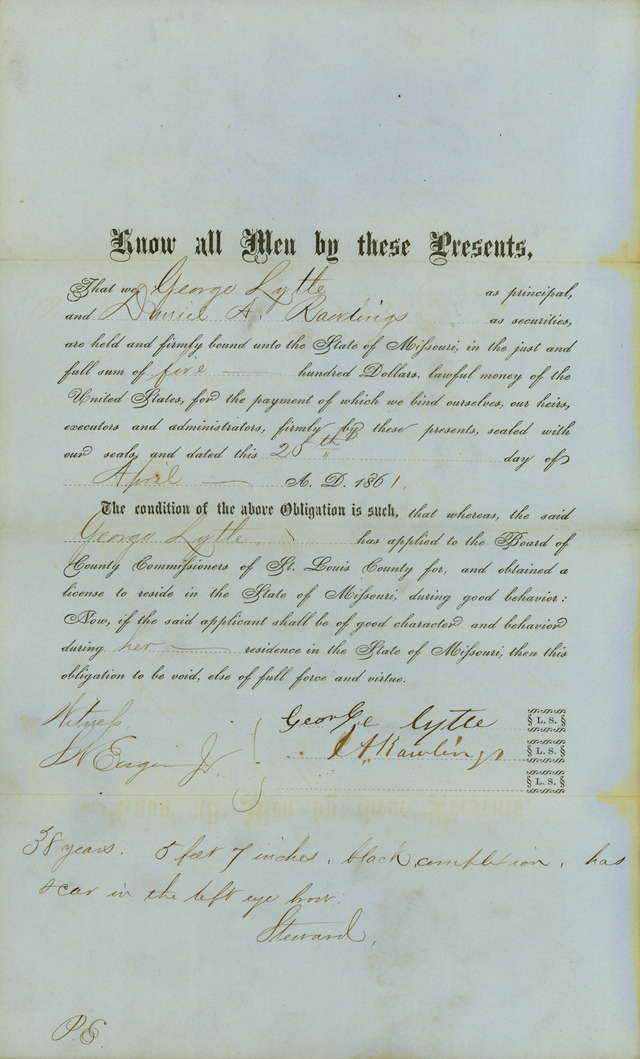 Know all Men by these Presents,
That we, George Lytle as principal,
and Daniel A. Rawlings as securities,
are held and firmly bound unto the State of Missouri, in the just and
full sum of five hundred Dollars, lawful money of the
United States, for the payment of which we bind ourselves, our heirs,
executors and administrators, firmly by these presents, sealed with
our seals, and dated this 25th day of
April A. D. 1861.
The condition of the above Obligation is such, that whereas, the said
George Lytle has applied to the Board of
County Commissioners of St. Louis County for, and obtained a
license to reside in the State of Missouri, during good behavior:
Now, if the said applicant shall be of good character and behavior
during her residence in the State of Missouri, then this
obligation to be void, else of full force and virtue.
Witness
George Lytle § L. S. §
Jr. A. Rawlings § L. S. §
§ L. S. §
38 years. 5 feet 7 inches, black complection, has
scar in the left eye brow.
Steward,